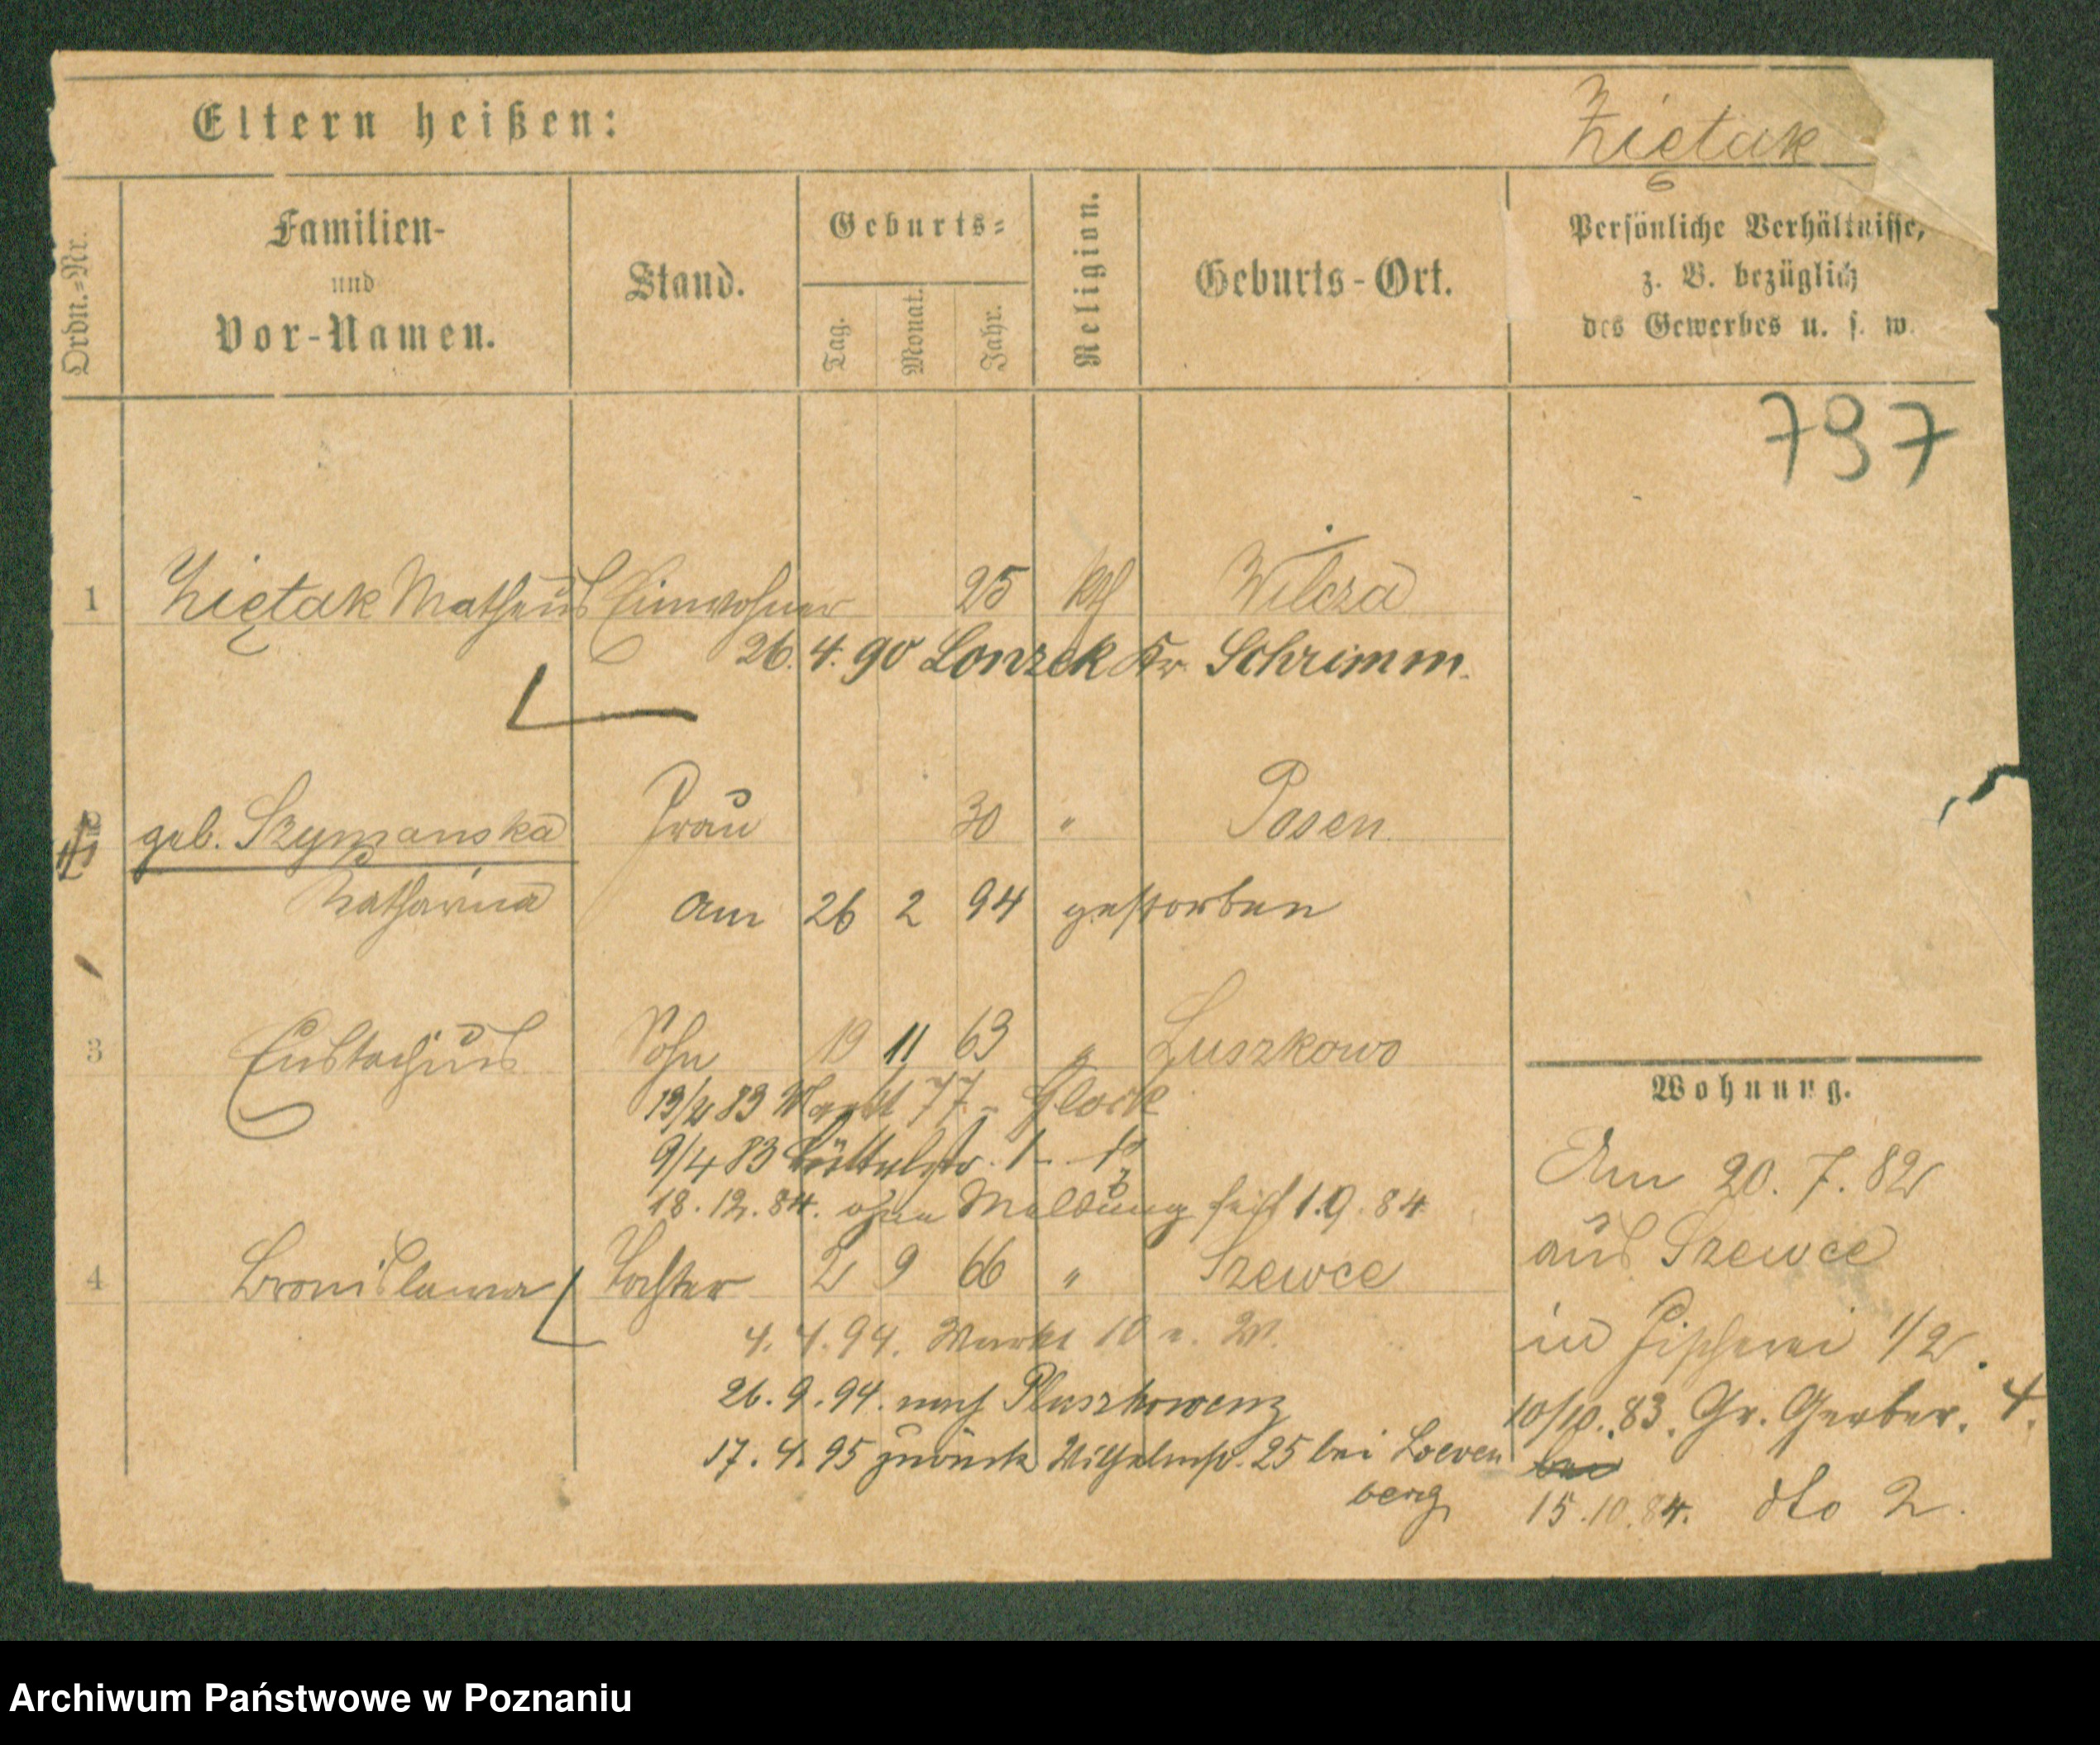 Eltern heißen:
Ziętak
Ordn.=Nr.
Familien-
und
Vor-Namen.
Stand.
Geburts=
Tag.
Monat.
Jahr.
Religion.
Geburts-Ort.
Persönliche Verhältnisse,
z. B. bezüglich
des Gewerbes u. s. w.
797
1 Ziętak Matheus Einwohner 25 kth Wilcza
26. 4. 90 Lonzek Kr. Schrimm.
2 geb. Szymanska Frau 30 " Posen
Katharina
am 26 2 94 gestorben
3 Eustachius Sohn 19 11 63 " Luszkowo
Markt 77
9/4 83 Büttelstr. 1
18. 12. 84. ohne Meldung seit 1. 9. 84
4 Bronislawa Tochter 2 9 66 " Szewce
4. 4. 94. Markt 10
26. 9. 94. nach Pluszkowenz
17. 4. 95 zurück Wilhelmstr. 25 bei Loewen
berg
Wohnung.
Am 20. 7. 82
aus Szewce
in Fischerei 1/2.
10/10. 83. Gr. Gerber. 4.
15. 10. 84. dto 2.
Archiwum Państwowe w Poznaniu